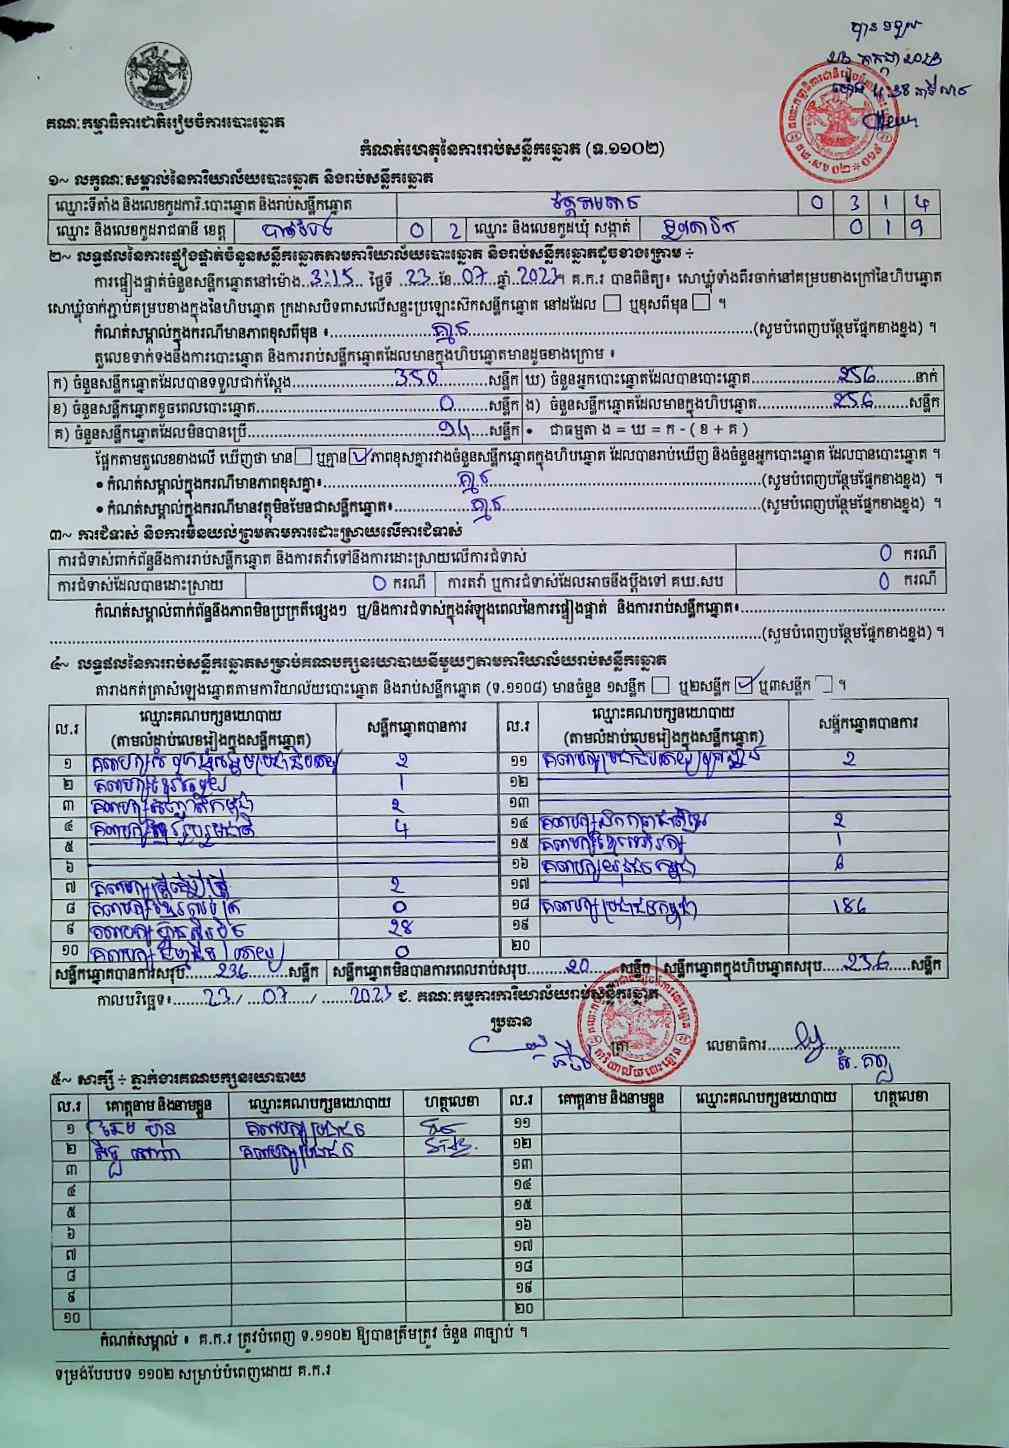 បានទទួល
23 កក្កដា 2023
គណៈកម្មាធិការជាតិរៀបចំការបោះឆ្នោត
កំណត់ហេតុនៃការរាប់សន្លឹកឆ្នោត (ទ.១១០២)
១~ លក្ខណៈសម្គាល់នៃការិយាល័យបោះឆ្នោត និងរាប់សន្លឹកឆ្នោត
ឈ្មោះទីតាំង និងលេខកូដការិ.បោះឆ្នោត និងរាប់សន្លឹកឆ្នោត 0 3 1 4
ឈ្មោះ និងលេខកូដរាជធានី ខេត្ត បាត់ដំបង 0 2 ឈ្មោះ និងលេខកូដឃុំ សង្កាត់ 0 1 9
២~ លទ្ធផលនៃការផ្ទៀងផ្ទាត់ចំនួនសន្លឹកឆ្នោតតាមការិយាល័យបោះឆ្នោត និងរាប់សន្លឹកឆ្នោតដូចខាងក្រោម ÷
ការផ្ទៀងផ្ទាត់ចំនួនសន្លឹកឆ្នោតនៅម៉ោង 3:15 ថ្ងៃទី 23 ខែ 07 ឆ្នាំ 2023។ គ.ក.រ បានពិនិត្យ៖ សោឃ្លុំទាំងពីរចាក់នៅគម្របខាងក្រៅនៃហិបឆ្នោត
សោឃ្លុំចាក់ភ្ជាប់គម្របខាងក្នុងនៃហិបឆ្នោត ក្រដាសបិទពាសលើសន្ទះប្រឡោះស៊ីកសន្លឹកឆ្នោត នៅដដែល ☐ ឬខុសពីមុន ☐ ។
កំណត់សម្គាល់ក្នុងករណីមានភាពខុសពីមុន ៖ គ្មាន (សូមបំពេញបន្ថែមផ្នែកខាងខ្នង) ។
តួលេខទាក់ទងនឹងការបោះឆ្នោត និងការរាប់សន្លឹកឆ្នោតដែលមានក្នុងហិបឆ្នោតមានដូចខាងក្រោម ៖
ក) ចំនួនសន្លឹកឆ្នោតដែលបានទទួលជាក់ស្តែង 350 សន្លឹក ឃ) ចំនួនអ្នកបោះឆ្នោតដែលបានបោះឆ្នោត 256 នាក់
ខ) ចំនួនសន្លឹកឆ្នោតខូចពេលបោះឆ្នោត 0 សន្លឹក ង) ចំនួនសន្លឹកឆ្នោតដែលមានក្នុងហិបឆ្នោត 256 សន្លឹក
គ) ចំនួនសន្លឹកឆ្នោតដែលមិនបានប្រើ 94 សន្លឹក • ជាធម្មតា ង = ឃ = ក - ( ខ + គ )
ផ្អែកតាមតួលេខខាងលើ ឃើញថា មាន ☐ ឬគ្មាន ☑ ភាពខុសគ្នារវាងចំនួនសន្លឹកឆ្នោតក្នុងហិបឆ្នោត ដែលបានរាប់ឃើញ និងចំនួនអ្នកបោះឆ្នោត ដែលបានបោះឆ្នោត ។
• កំណត់សម្គាល់ក្នុងករណីមានភាពខុសគ្នា៖ គ្មាន (សូមបំពេញបន្ថែមផ្នែកខាងខ្នង) ។
• កំណត់សម្គាល់ក្នុងករណីមានវត្ថុមិនមែនជាសន្លឹកឆ្នោត៖ គ្មាន (សូមបំពេញបន្ថែមផ្នែកខាងខ្នង) ។
៣~ ការជំទាស់ និងការមិនយល់ព្រមតាមការដោះស្រាយលើការជំទាស់
ការជំទាស់ពាក់ព័ន្ធនឹងការរាប់សន្លឹកឆ្នោត និងការតវ៉ាទៅនឹងការដោះស្រាយលើការជំទាស់ 0 ករណី
ការជំទាស់ដែលបានដោះស្រាយ 0 ករណី ការតវ៉ា ឬការជំទាស់ដែលអាចនឹងប្តឹងទៅ គឃ.សប 0 ករណី
កំណត់សម្គាល់ពាក់ព័ន្ធនឹងភាពមិនប្រក្រតីផ្សេងៗ ឬ/និងការជំទាស់ក្នុងអំឡុងពេលនៃការផ្ទៀងផ្ទាត់ និងការរាប់សន្លឹកឆ្នោត៖
(សូមបំពេញបន្ថែមផ្នែកខាងខ្នង) ។
៤~ លទ្ធផលនៃការរាប់សន្លឹកឆ្នោតសម្រាប់គណបក្សនយោបាយនីមួយៗតាមការិយាល័យរាប់សន្លឹកឆ្នោត
តារាងកត់ត្រាសំឡេងឆ្នោតតាមការិយាល័យបោះឆ្នោត និងរាប់សន្លឹកឆ្នោត (ទ.១១០៨) មានចំនួន ១សន្លឹក ☐ ឬ២សន្លឹក ☑ ឬ៣សន្លឹក ☐ ។
ល.រ ឈ្មោះគណបក្សនយោបាយ (តាមលំដាប់លេខរៀងក្នុងសន្លឹកឆ្នោត) សន្លឹកឆ្នោតបានការ ល.រ ឈ្មោះគណបក្សនយោបាយ (តាមលំដាប់លេខរៀងក្នុងសន្លឹកឆ្នោត) សន្លឹកឆ្នោតបានការ
១ 2 ១១ 2
២ 1 ១២
៣ 2 ១៣
៤ 4 ១៤ 2
៥ ១៥ 1
៦ ១៦
៧ 2 ១៧
៨ 0 ១៨ គណបក្សប្រជាជនកម្ពុជា 186
៩ 28 ១៩
១០ 0 ២០
សន្លឹកឆ្នោតបានការសរុប 236 សន្លឹក សន្លឹកឆ្នោតមិនបានការពេលរាប់សរុប 20 សន្លឹក សន្លឹកឆ្នោតក្នុងហិបឆ្នោតសរុប 256 សន្លឹក
កាលបរិច្ឆេទ៖ 23 / 07 / 2023 ជ. គណៈកម្មការការិយាល័យរាប់សន្លឹកឆ្នោត
ប្រធាន
ត្រា លេខាធិការ
៥~ សាក្សី ÷ ភ្នាក់ងារគណបក្សនយោបាយ
ល.រ គោត្តនាម និងនាមខ្លួន ឈ្មោះគណបក្សនយោបាយ ហត្ថលេខា ល.រ គោត្តនាម និងនាមខ្លួន ឈ្មោះគណបក្សនយោបាយ ហត្ថលេខា
១ គណបក្សប្រជាជន ១១
២ គណបក្សប្រជាជន ១២
៣ ១៣
៤ ១៤
៥ ១៥
៦ ១៦
៧ ១៧
៨ ១៨
៩ ១៩
១០ ២០
កំណត់សម្គាល់ ៖ គ.ក.រ ត្រូវបំពេញ ទ.១១០២ ឱ្យបានត្រឹមត្រូវ ចំនួន ៣ច្បាប់ ។
ទម្រង់បែបបទ ១១០២ សម្រាប់បំពេញដោយ គ.ក.រ